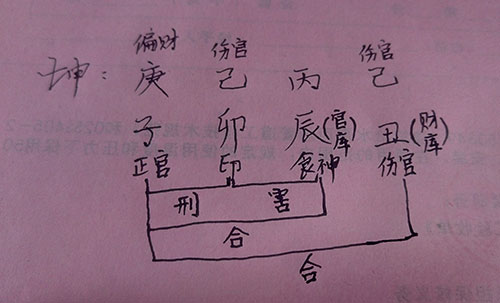 偏财 伤官 伤官
坤： 庚 己 丙 己
子 卯 辰(官库) 丑(财库)
正官 印 食神 伤官
刑 害
合
合